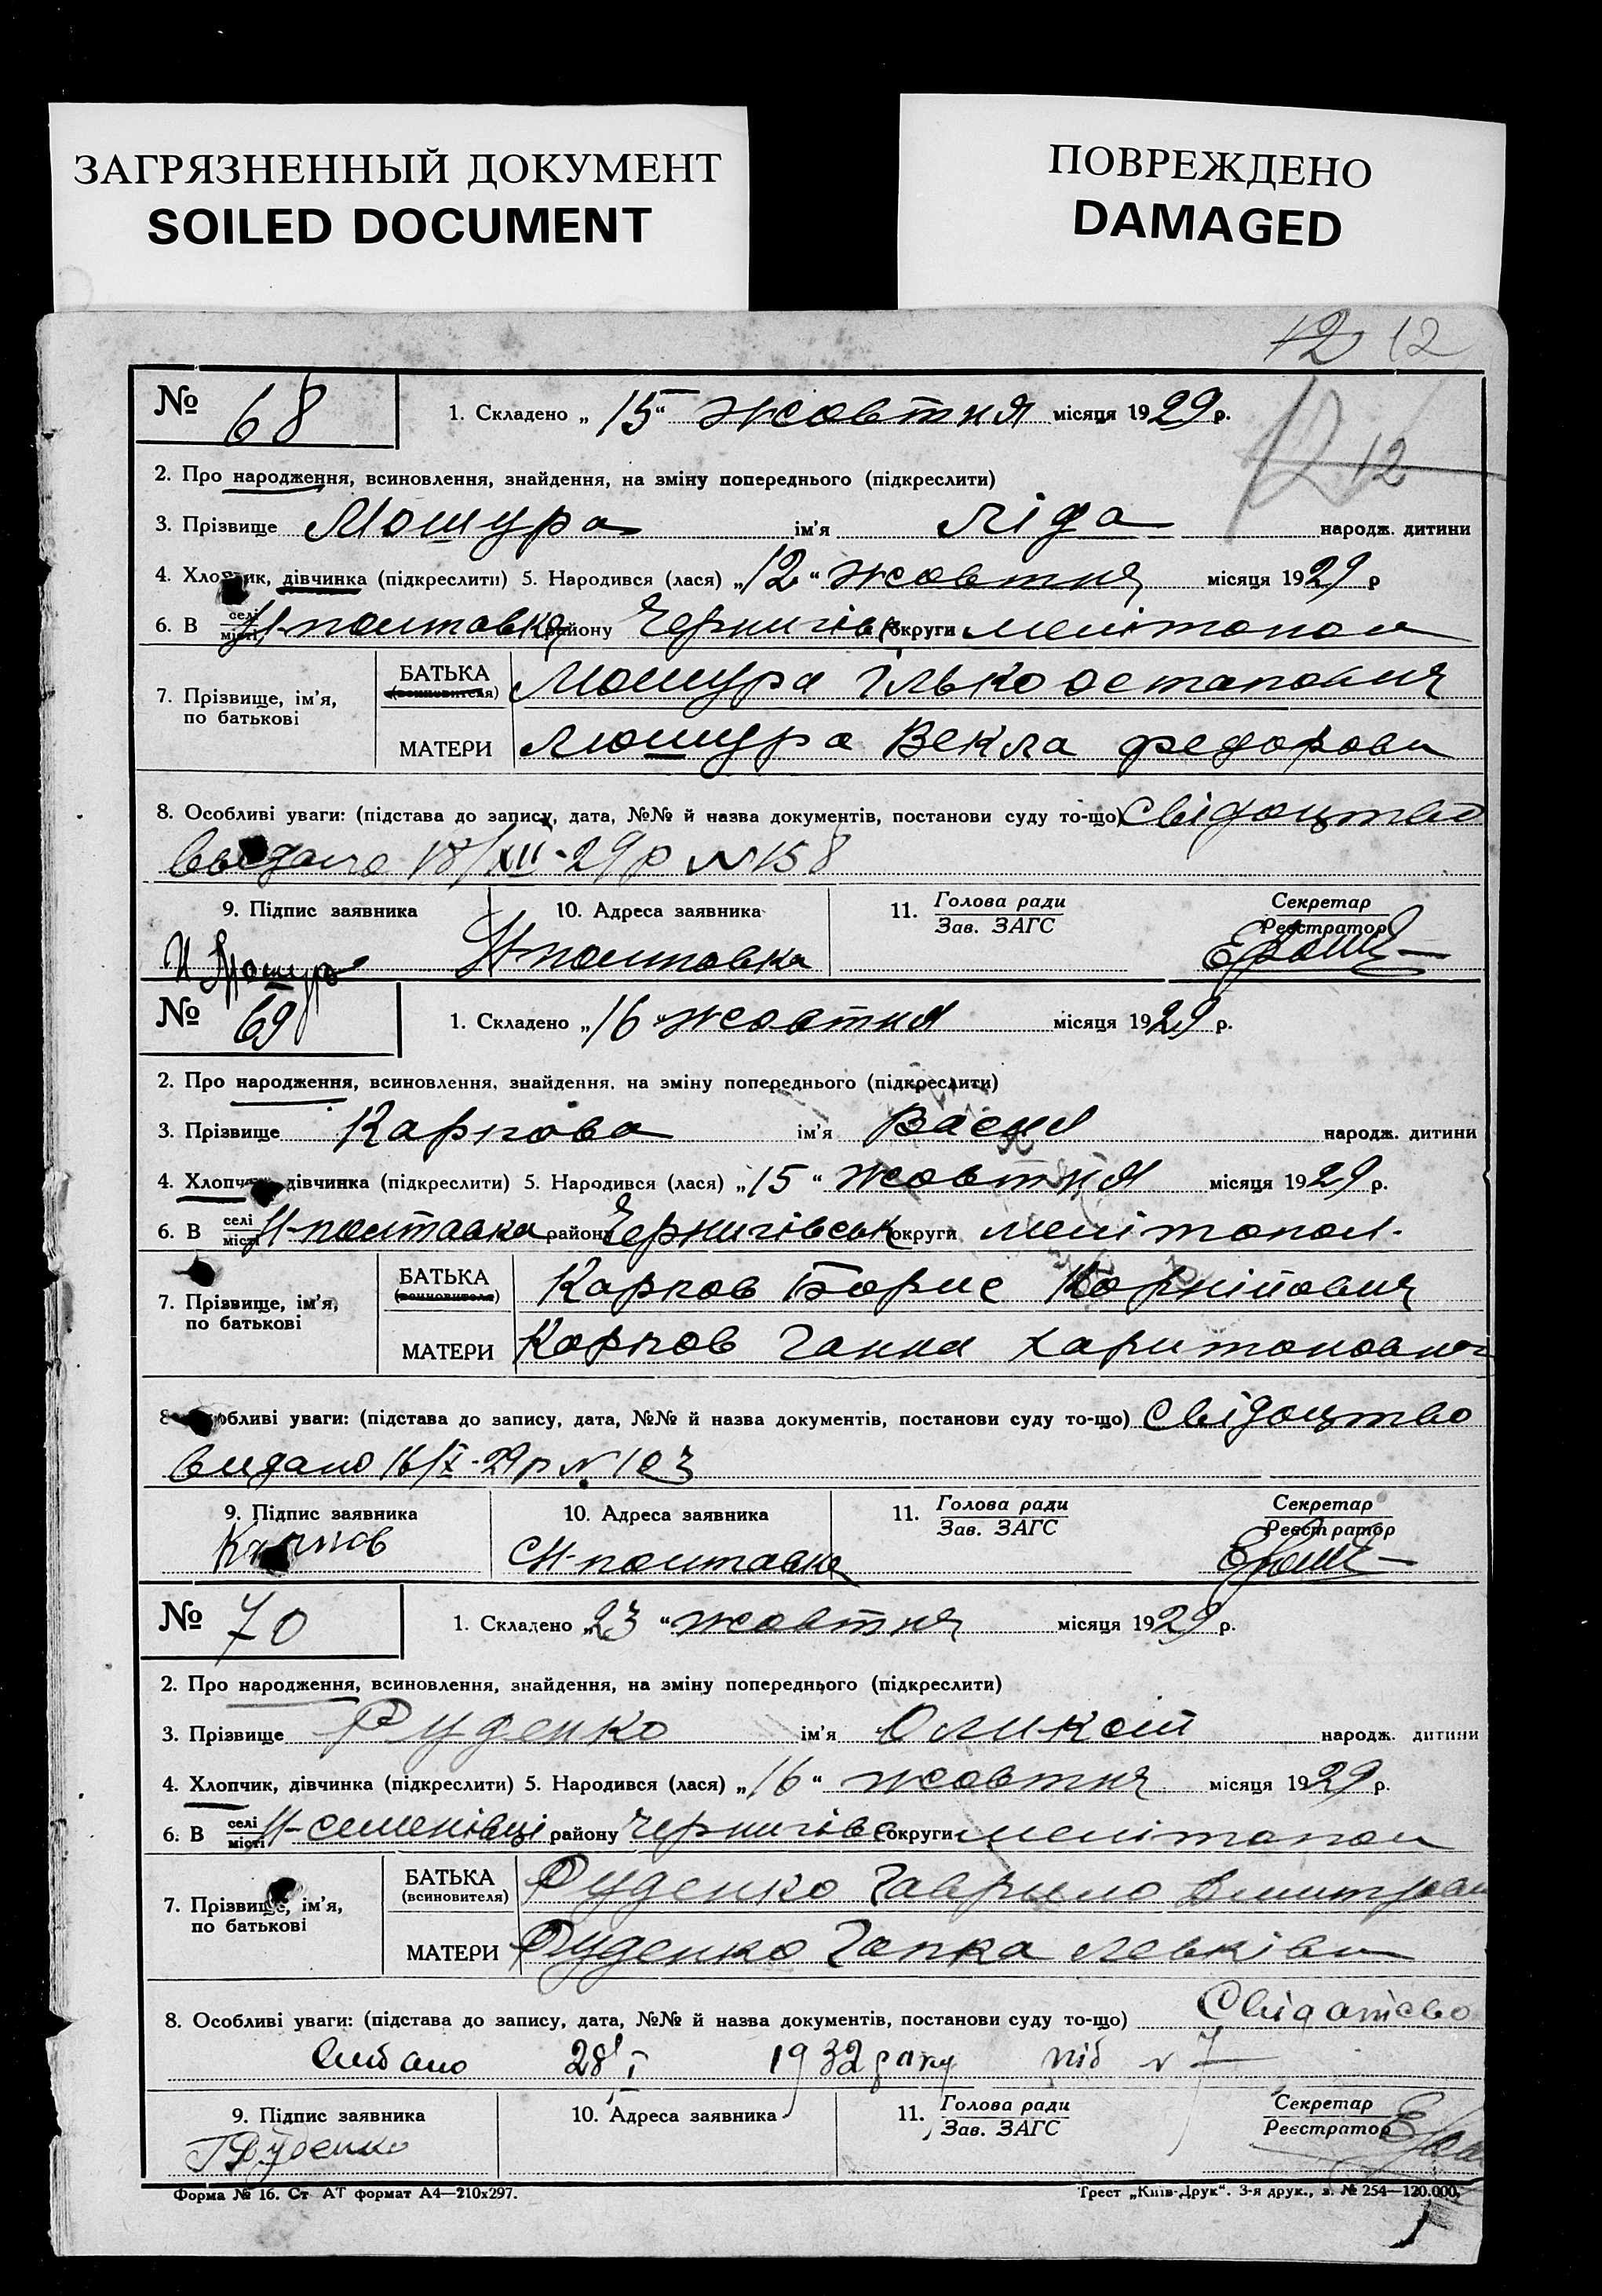 ЗАГРЯЗНЕННЫЙ ДОКУМЕНТ
SOILED DOCUMENT
ПОВРЕЖДЕНО
DAMAGED
12 12
№ 68
1. Складено „15“ жовтня місяця 1929 р.
12 12
2. Про народження, всиновлення, знайдення, на зміну попереднього (підкреслити)
3. Прізвище Мошура ім'я Ліда народж. дитини
4. Хлопчик, дівчинка (підкреслити) 5. Народився (лася) „12“ жовтня місяця 1929 р
6. В селі/місті Н-полтавка району Чернигівс округи мелітопол
7. Прізвище, ім'я, по батькові
БАТЬКА (всиновителя) Мошура Ілько Остапович
МАТЕРИ Мошура Векла федоровн
8. Особливі уваги: (підстава до запису, дата, №№ й назва документів, постанови суду то-що) Свідоцтво
видано 18/XII-29р №158
9. Підпис заявника 10. Адреса заявника 11. Голова ради/Зав. ЗАГС Секретар/Реєстратор
И Мошура Н-полтавка
№ 69
1. Складено „16“ жовтня місяця 1929 р.
2. Про народження, всиновлення, знайдення, на зміну попереднього (підкреслити)
3. Прізвище Карпова ім'я Васил народж. дитини
4. Хлопчик, дівчинка (підкреслити) 5. Народився (лася) „15“ жовтня місяця 1929 р.
6. В селі/місті Н-полтавка району Чернигівськ округи мелітопол.
7. Прізвище, ім'я, по батькові
БАТЬКА (всиновителя) Карпов Борис Корнійович
МАТЕРИ Карпов Ганна харитоновна
8. Особливі уваги: (підстава до запису, дата, №№ й назва документів, постанови суду то-що) Свідоцтво
видано 16/X-29р №103
9. Підпис заявника 10. Адреса заявника 11. Голова ради/Зав. ЗАГС Секретар/Реєстратор
Карпов Н-полтавка
№ 70
1. Складено „23“ жовтня місяця 1929 р.
2. Про народження, всиновлення, знайдення, на зміну попереднього (підкреслити)
3. Прізвище Руденко ім'я Оликсій народж. дитини
4. Хлопчик, дівчинка (підкреслити) 5. Народився (лася) „16“ жовтня місяця 1929 р.
6. В селі/місті Н-семенівці району Чернигівс округи мелітопол
7. Прізвище, ім'я, по батькові
БАТЬКА (всиновителя) Руденко Гаврило Дмитрови
МАТЕРИ Руденко Гапка Левківн
8. Особливі уваги: (підстава до запису, дата, №№ й назва документів, постанови суду то-що) Свідатсво
видано 28/I 1932 року під № 7
9. Підпис заявника 10. Адреса заявника 11. Голова ради/Зав. ЗАГС Секретар/Реєстратор
Г Руденко
Форма № 16. Ст АТ формат А4—210x297.
Трест „Київ-Друк“. 3-я друк., з. № 254—120.000.